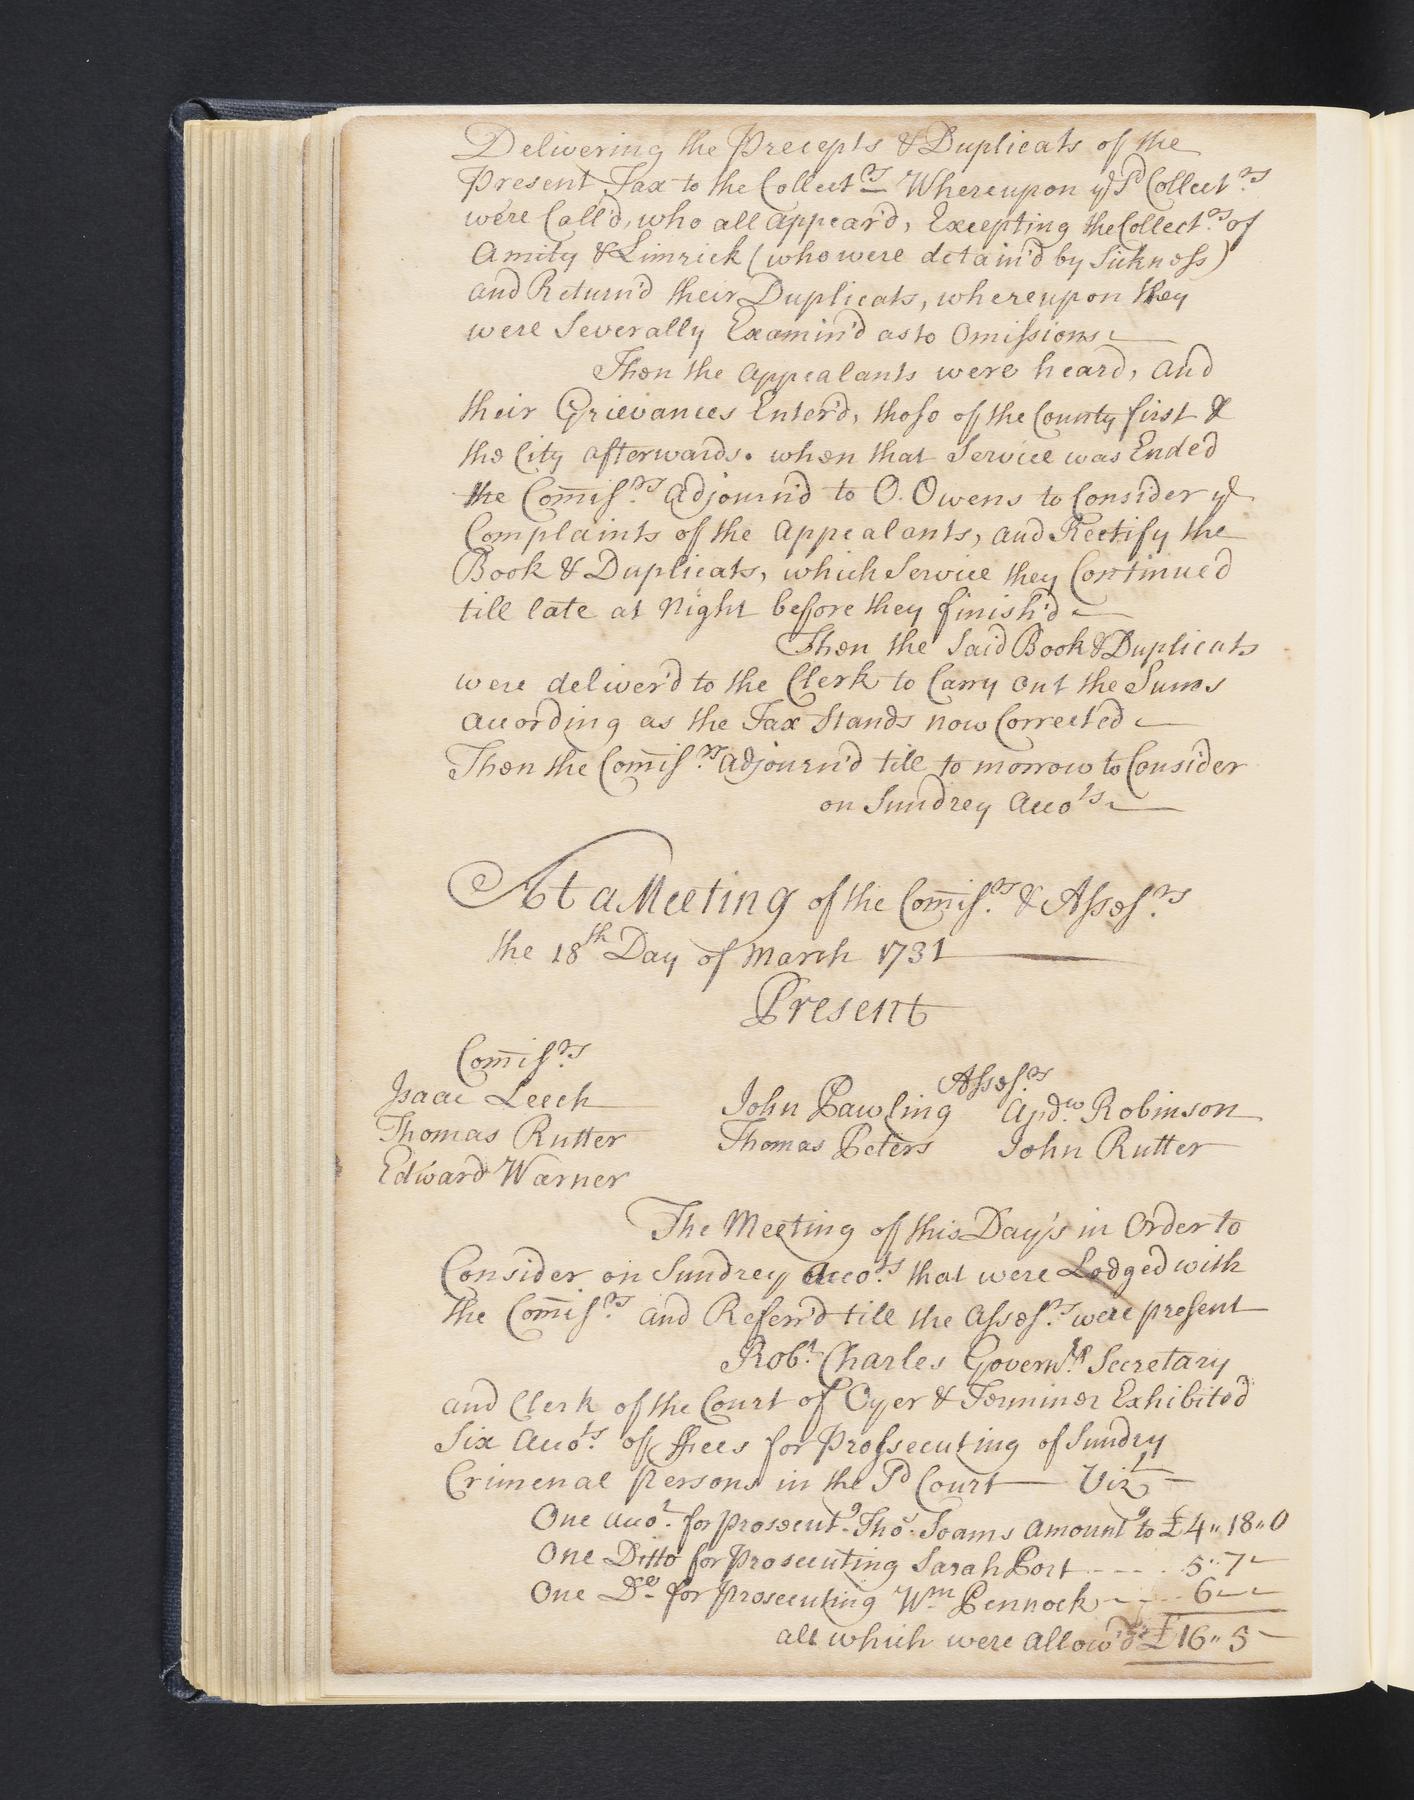 Delivering the Precepts & Duplicats of the
Present Tax to the Collect.rs Whereupon ye Sd Collect.rs
were Call'd, who all appear'd, Excepting the Collect.rs of
Amity & Limrick (who were detain'd by Sickness)
and Return'd their Duplicats, whereupon they
were Severally Examin'd as to Omissions
Then the Appealants were heard, and
their Grievances Enter'd, those of the County first &
the City afterwards. when that Service was Ended
the Comis.rs Adjourn'd to O. Owens to Consider ye
Complaints of the Appealants, and Rectify the
Book & Duplicats, which Service they Continued
till late at Night before they finish'd
Then the Said Book & Duplicats
were deliver'd to the Clerk to Carry out the Sums
according as the Tax Stands now Corrected
Then the Comis.rs Adjourn'd till to morrow to Consider
on Sundrey Acco.ts
At a Meeting of the Comis.rs & Asses.rs
the 18th Day of March 1731
Present
Comis.rs
Asses.rs
Isaac Leech John Pawling And.w Robinson
Thomas Rutter Thomas Peters John Rutter
Edward Warner
The Meeting of this Day's in Order to
Consider on Sundrey Acco.ts that were Lodged with
the Comis.rs and Referr'd till the Asses.rs were present
Rob.t Charles Govern.rs Secretary
and Clerk of the Court of Oyer & Terminer Exhibited
Six Acco.ts of ffees for Prossecuting of Sundry
Crimenal persons in the Sd Court Vizt
One Acco.t for prosecut.g Tho.s Toams Amount.g to £4" 18" 0
One Ditto for Prosecuting Sarah Port 5" 7
One Do for Prosecuting Wm Pennock 6
all which were Allow'd £16" 5